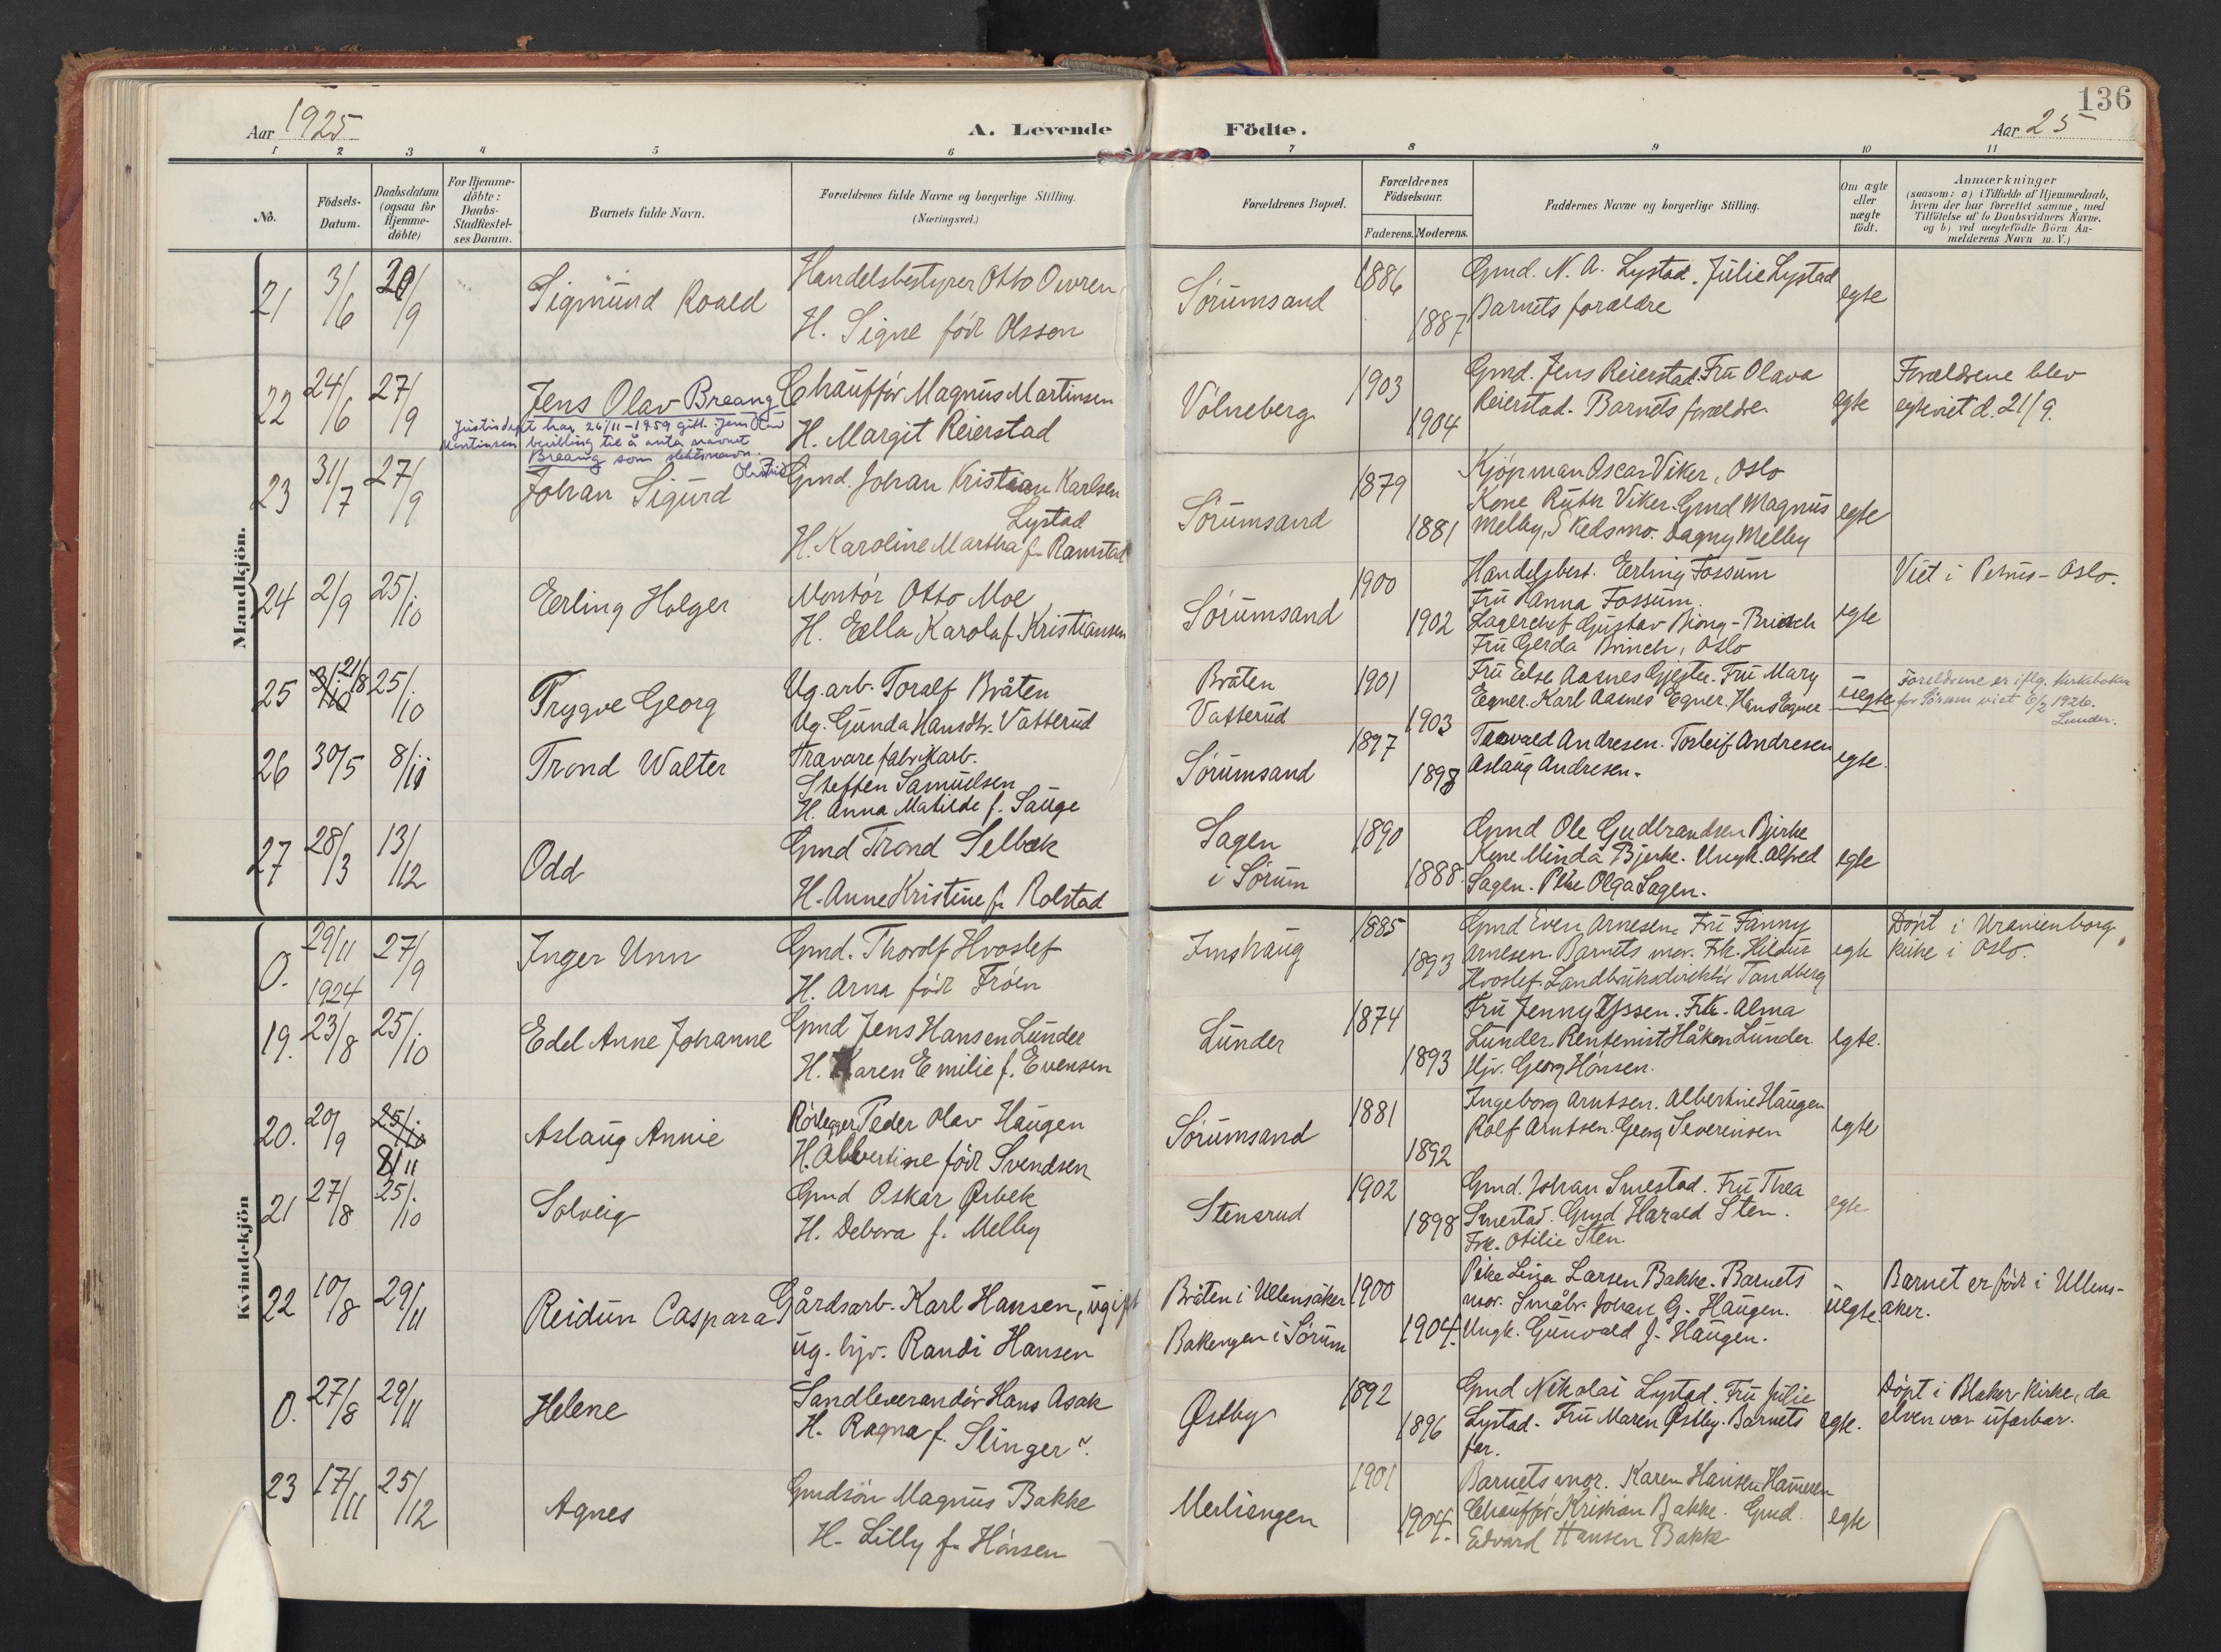 136
Aar 1925
A. Levende Födte.
Aar 25
1 2 3 4 5 6 7 8 9 10 11
No.
Födsels-Datum.
Daabsdatum (ogsaa for Hjemme-döbte)
For Hjemme-döbte: Daabs-Stadfæstel-ses Datum.
Barnets fulde Navn.
Forældrenes fulde Navne og borgerlige Stilling. (Næringsvei.)
Forældrenes Bopæl.
Forældrenes Födselsaar.
Faderens. Moderens.
Faddernes Navne og borgerlige Stilling.
Om ægte eller uægte födt.
Anmærkninger
(saasom: a) i Tilfælde af Hjemmedaab,
hvem der har forrettet samme, med
Tilföielse af to Daabsvidners Navne,
og b) ved uægtefödte Börn An-
melderens Navn m. V.)
Mandkjön.
21 3/6 20/9 Sigmund Roald
Handelsbestyrer Otto Owren
H. Signe född Olsson
Sörumsand 1886 1887
Gmd. N. A. Lystad. Julie Lystad
Barnets foraldre
egte
22 24/6 27/9 Jens Olav Breang
Justisdept har 26/11-1959 gitt Jens Olav
Martinsen bevilling til å anta navnet
Breang som slektsnavn.
Chaufför Magnus Martinsen
H. Margit Reierstad
Völneberg 1903 1904
Gmd. Jens Reierstad. Fru Olava
Reierstad. Barnets forældre
egte
Forældrene blev
egteviet d. 21/9.
23 31/7 27/9 Johan Sigurd
Gmd. Johan Kristian Karlsen
Lystad
H. Karoline Martha f. Ramstad
Sörumsand 1879 1881
Kjöpman Oscar Viker, Oslo
Kone Ruth Viker. Gmd Magnus
Melby, Skedsmo. Dagny Melby
egte
24 2/9 25/10 Erling Holger
Montör Otto Moe
H. Ella Karola f. Kristiansen
Sörumsand 1900 1902
Handelsbest. Erling Fossum
Fru Anna Fossum.
Lagerchef Gustav Biong-Brinch
Fru Gerda Brinch, Oslo
egte
Viet i Petrus-Oslo.
25 3/10 21/8 25/10 Trygve Georg
Ug. arb. Toralf Bråten
Ug. Gunda Hansdtr. Vatterud
Bråten
Vatterud
1901 1903
Fru Else Aasnes Gjester. Fru Mary
Egner. Karl Aasnes Egner. Hans Egner
uegte
Foreldrene er iflg. kirkeboken
for Sörum viet 6/2 1926.
Lunder.
26 30/5 8/11 Trond Walter
Travarefabrikarb.
Steffen Samuelsen
H. Anna Matilde f. Sauge
Sörumsand 1897 1898
Torvald Andresen. Torleif Andresen
Aslaug Andresen.
egte.
27 28/3 13/12 Odd
Gmd Trond Selbæk
H. Anne Kristine f. Rolstad
Sagen
i Sörum
1890 1888.
Gmd Ole Gudbrandsen Bjerke
Kone Minda Bjerke. Ungk. Alfred
Sagen. Pike Olga Sagen.
egte
Kvindekjön
0. 29/11 1924 27/9 Inger Unn
Gmd. Thorolf Hvoslef
H. Arna född Fröen
Imshaug 1885 1893
Gmd Even Arnesen. Fru Fanny
Arnesen. Barnets mor. Frk. Hildur
Hvoslef. Landbruksdirektör Tandberg
egte
Döpt i Uranienborg
kirke i Oslo.
19. 23/8 25/10 Edel Anne Johanne
Gmd Jens Hansen Lunder
H. Karen Emilie f. Evensen
Lunder 1874 1893
Fru Jenny Essen. Frk. Alma
Lunder. Rentenist Håken Lunder
Hjv. Georg Hönsen.
egte.
20. 20/9 25/10 8/11 Aslaug Annie
Rörlegger Peder Olav Haugen
H. Albertine född Svendsen
Sörumsand 1881 1892
Ingeborg Arntsen. Albertine Haugen
Rolf Arntsen. Georg Severensen
egte
21 27/8 25/10 Solveig
Gmd Oskar Ørbek
H. Debora f. Melby
Stensrud 1902 1898
Gmd. Johan Smestad. Fru Thea
Smestad. Gmd Harald Sten.
Frk. Otilie Sten.
egte
22 10/8 29/11 Reidun Caspara
Gårdsarb. Karl Hansen, ugift
ug. hjv. Randi Hansen
Bråten i Ullensaker
Bakengen i Sörum
1900 1904.
Pike Lina Larsen Bakke. Barnets
mor. Småbr. Johan G. Haugen.
Ungk. Gunvald J. Haugen.
uegte.
Barnet er född i Ullens-
aker.
0. 27/8 29/11 Helene
Sandleverandör Hans Asak
H. Ragna f. Slinger
Østby 1892 1896
Gmd Nikolai Lystad. Fru Julie
Lystad. Fru Maren Østby. Barnets
far.
egte.
Döpt i Blaker kirke, da
elven var ufarbar.
23 17/11 25/12 Agnes
Gmdsön Magnus Bakke
H. Lilly f. Hönsen
Merliengen 1901 1904.
Barnets mor. Karen Hansen Hameren
Chaufför Kristian Bakke. Gmd.
Edvard Hansen Bakke
egte